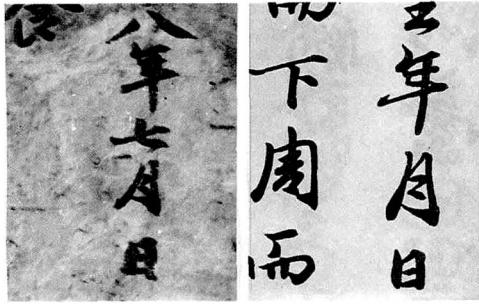 八年七月日
年月日
下周而